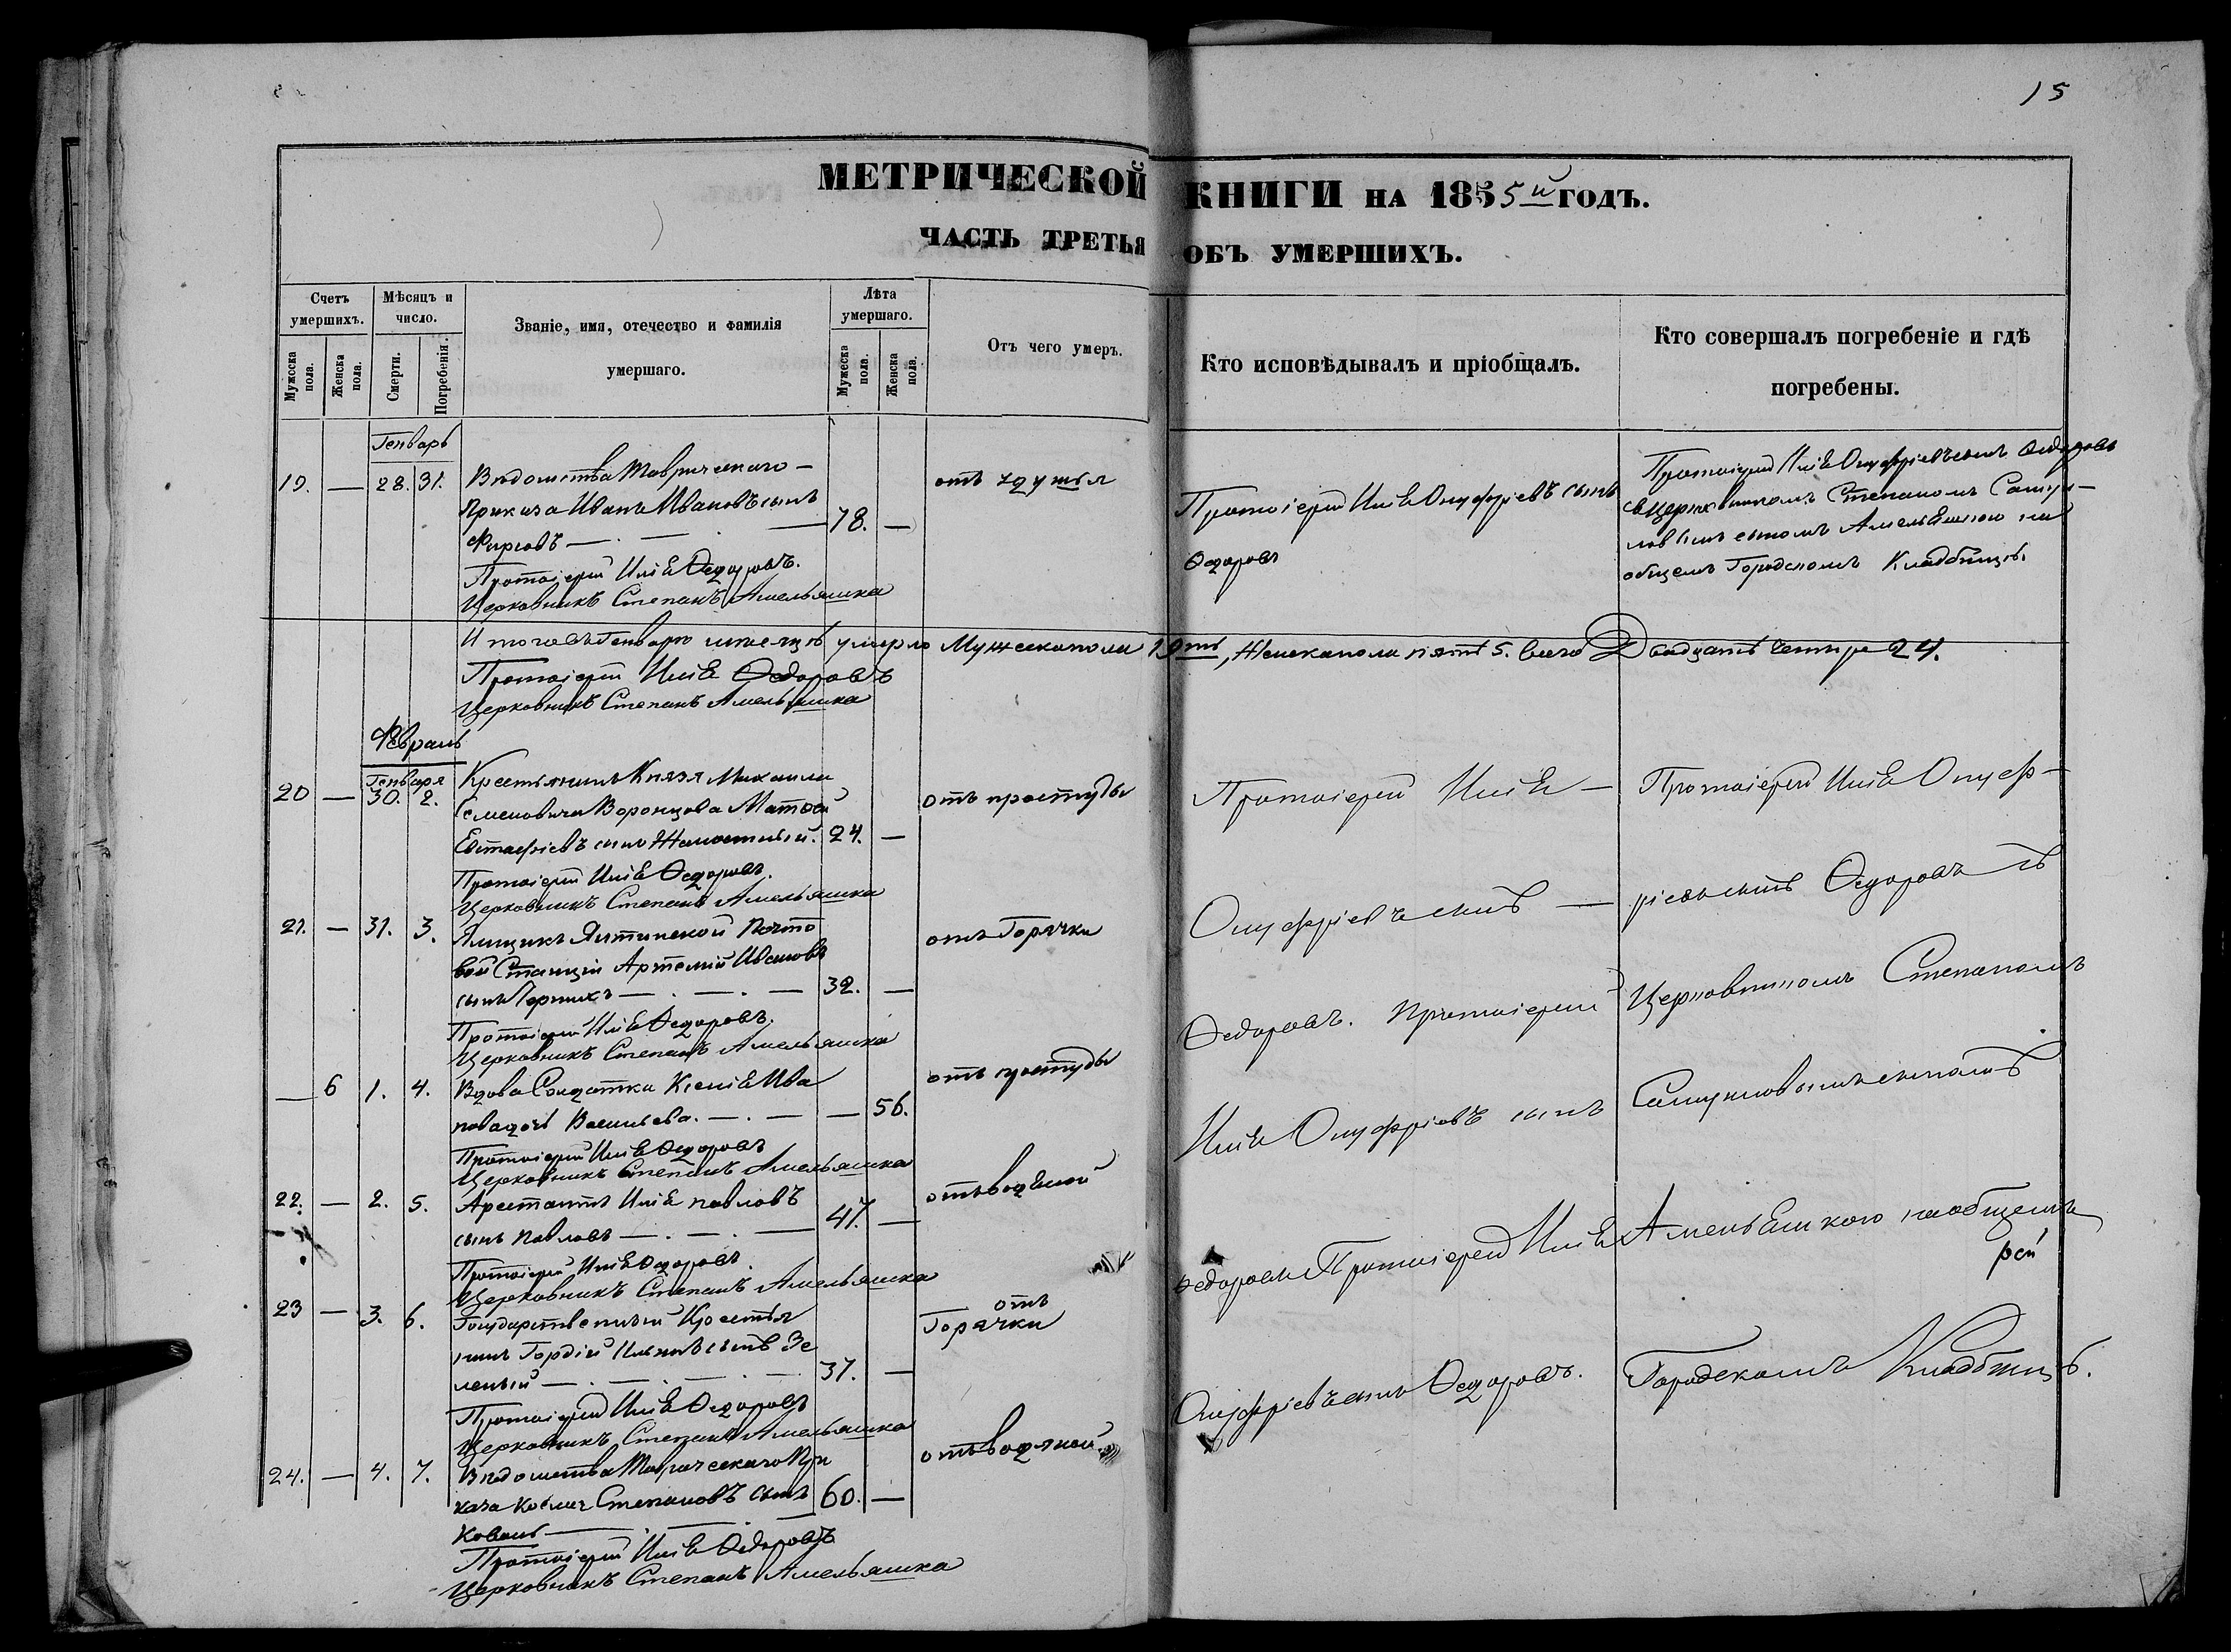 15
МЕТРИЧЕСКОЙ КНИГИ НА 1855й ГОДЪ.
ЧАСТЬ ТРЕТЬЯ ОБЪ УМЕРШИХЪ.
Счетъ умершихъ.
Мужеска пола.
Женска пола.
Мѣсяцъ и число.
Смерти.
Погребенія.
Званіе, имя, отечество и фамилія умершаго.
Лѣта умершаго.
Мужеска пола.
Женска пола.
Отъ чего умеръ.
Кто исповѣдывалъ и пріобщалъ.
Кто совершалъ погребеніе и гдѣ погребены.
Генварь
19. — 28. 31. Вѣдомства Таврическаго —
Приказа Иванъ Ивановъ сынъ
Фирсовъ — 78. —
отъ удушья
Протоіерей Илія Онуфріевъ сынъ
Ѳедоровъ
Протоіерей Илія Онуфріевъ сынъ Ѳедоровъ
съ Церковникомъ Степаномъ Самуи-
ловымъ сыномъ Амельяшкою на
общемъ Городскомъ Кладбищѣ.
Протоіерей Илія Ѳедоровъ.
Церковникъ Степанъ Амельяшка
Итого въ Генварѣ мѣсяцѣ умерло Мужеска пола 19ть, Женска пола пять 5. всего Двадцать четыре 24.
Протоіерей Илія Ѳедоровъ
Церковникъ Степанъ Амельяшка
Февраль
Генваря
20 — 30. 2. Крестьянинъ Князя Михаила
Семеновича Воронцова Матвѣй
Евстафіевъ сынъ 24. —
отъ простуды
Протоіерей Илія Ѳедоровъ.
Церковникъ Степанъ Амельяшка
21. — 31. 3. Ямщикъ Ялтинской Почто
вой Станціи Артемій Ивановъ
сынъ — 32. —
отъ Горячки
Протоіерей Илія Ѳедоровъ.
Церковникъ Степанъ Амельяшка
— 6 1. 4. Вдова Солдатка Ксенія Ива
нова дочь Васильева. — — 56.
отъ простуды
Протоіерей Илія Ѳедоровъ
Церковникъ Степанъ Амельяшка
22. — 2. 5. Арестантъ Илія Павловъ
сынъ Павловъ — 47. —
отъ водяной
Протоіерей Илія Ѳедоровъ.
Церковникъ Степанъ Амельяшка
23 — 3. 6. Государственный Крестья
нинъ Гордій Ильинъ сынъ Зе
леный — 37. —
отъ
Горячки
Протоіерей Илія Ѳедоровъ
Церковникъ Степанъ Амельяшка
24. — 4. 7. Вѣдомства Таврическаго При
каза Косма Степановъ сынъ 60. —
Коваль —
отъ водяной
Протоіерей Илія Ѳедоровъ
Церковникъ Степанъ Амельяшка
Протоіерей Илія —
Онуфріевъ сынъ —
Ѳедоровъ. Протоіерей
Илія Онуфріевъ сынъ
Ѳедоровъ Протоіерей Илія
Онуфріевъ сынъ Ѳедоровъ.
Протоіерей Илія Онуф-
ріевъ сынъ Ѳедоровъ съ
Церковникомъ Степаномъ
Самуиловымъ сыномъ
Амельяшкою на общемъ
рей
Городскомъ Кладбищѣ.